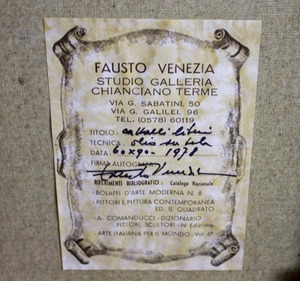 FAUSTO VENEZIA
STUDIO GALLERIA
CHIANCIANO TERME
VIA G. SABATINI, 50
VIA G. GALILEI, 96
TEL. (0578) 60119
TITOLO: cavalli
TECNICA: olio su tela
DATA: 60x90 - 1978
FIRMA AUTOGRAFA
RIFERIMENTI BIBLIOGRAFICI: Catalogo Nazionale
BOLAFFI D'ARTE MODERNA N. 8
PITTORI E PITTURA CONTEMPORANEA
ED. IL QUADRATO
A. COMANDUCCI - DIZIONARIO
PITTORI, SCULTORI - IV Edizione
ARTE ITALIANA PER IL MONDO - Vol. 6°